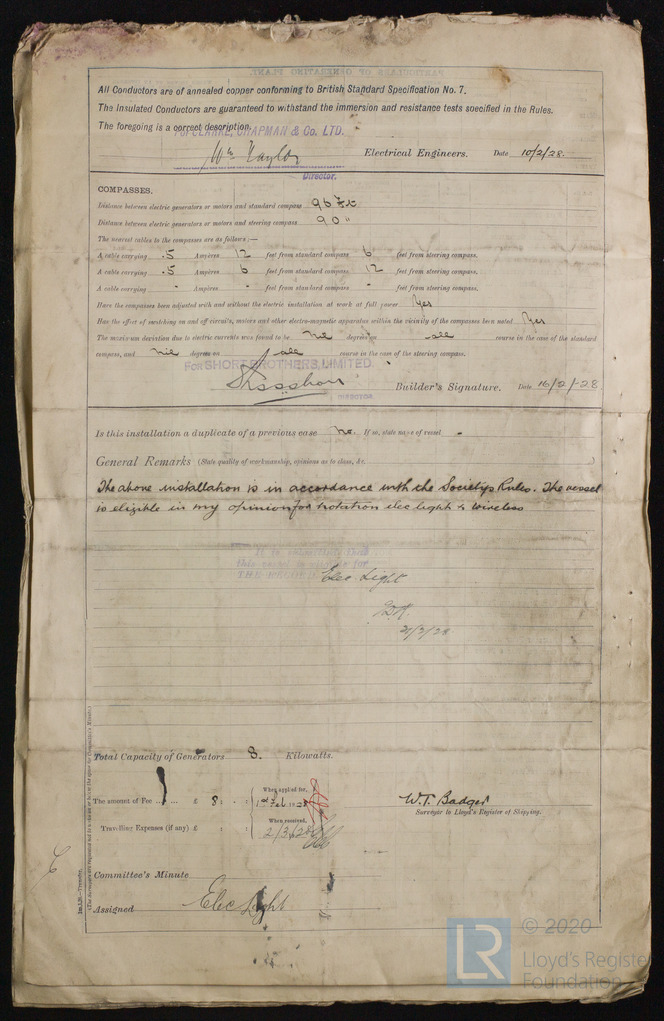 All Conductors are of annealed copper conforming to British Standard Specification No. 7.
The Insulated Conductors are guaranteed to withstand the immersion and resistance tests specified in the Rules.
The foregoing is a correct description.
CHAPMAN & Co. LTD.
Wm Taylor Electrical Engineers. Date 10/2/28.
Director.
COMPASSES.
Distance between electric generators or motors and standard compass 96 feet
Distance between electric generators or motors and steering compass 90 "
The nearest cables to the compasses are as follows:—
A cable carrying .5 Ampères 12 feet from standard compass 6 feet from steering compass.
A cable carrying .5 Ampères 6 feet from standard compass 12 feet from steering compass.
A cable carrying - Ampères - feet from standard compass - feet from steering compass.
Have the compasses been adjusted with and without the electric installation at work at full power Yes
Has the effect of switching on and off circuits, motors and other electro-magnetic apparatus within the vicinity of the compasses been noted Yes
The maximum deviation due to electric currents was found to be nil degrees on all course in the case of the standard
compass, and nil degrees on all course in the case of the steering compass.
For SHORT BROTHERS, LIMITED.
Builder's Signature. Date 16/2/-28
DIRECTOR.
Is this installation a duplicate of a previous case no. If so, state name of vessel -
General Remarks (State quality of workmanship, opinions as to class, &c.
The above installation is in accordance with the Societys Rules. The vessel
is eligible in my opinion for notation elec light & wireless
Elec. Light
Total Capacity of Generators 8. Kilowatts.
The amount of Fee ... ... £ 8 : :
When applied for,
Travelling Expenses (if any) £ : :
When received,
2/3/28
W.T. Badger
Surveyor to Lloyd's Register of Shipping.
Committee's Minute
Assigned Elec Light
LR © 2020
Lloyd's Register
Foundation